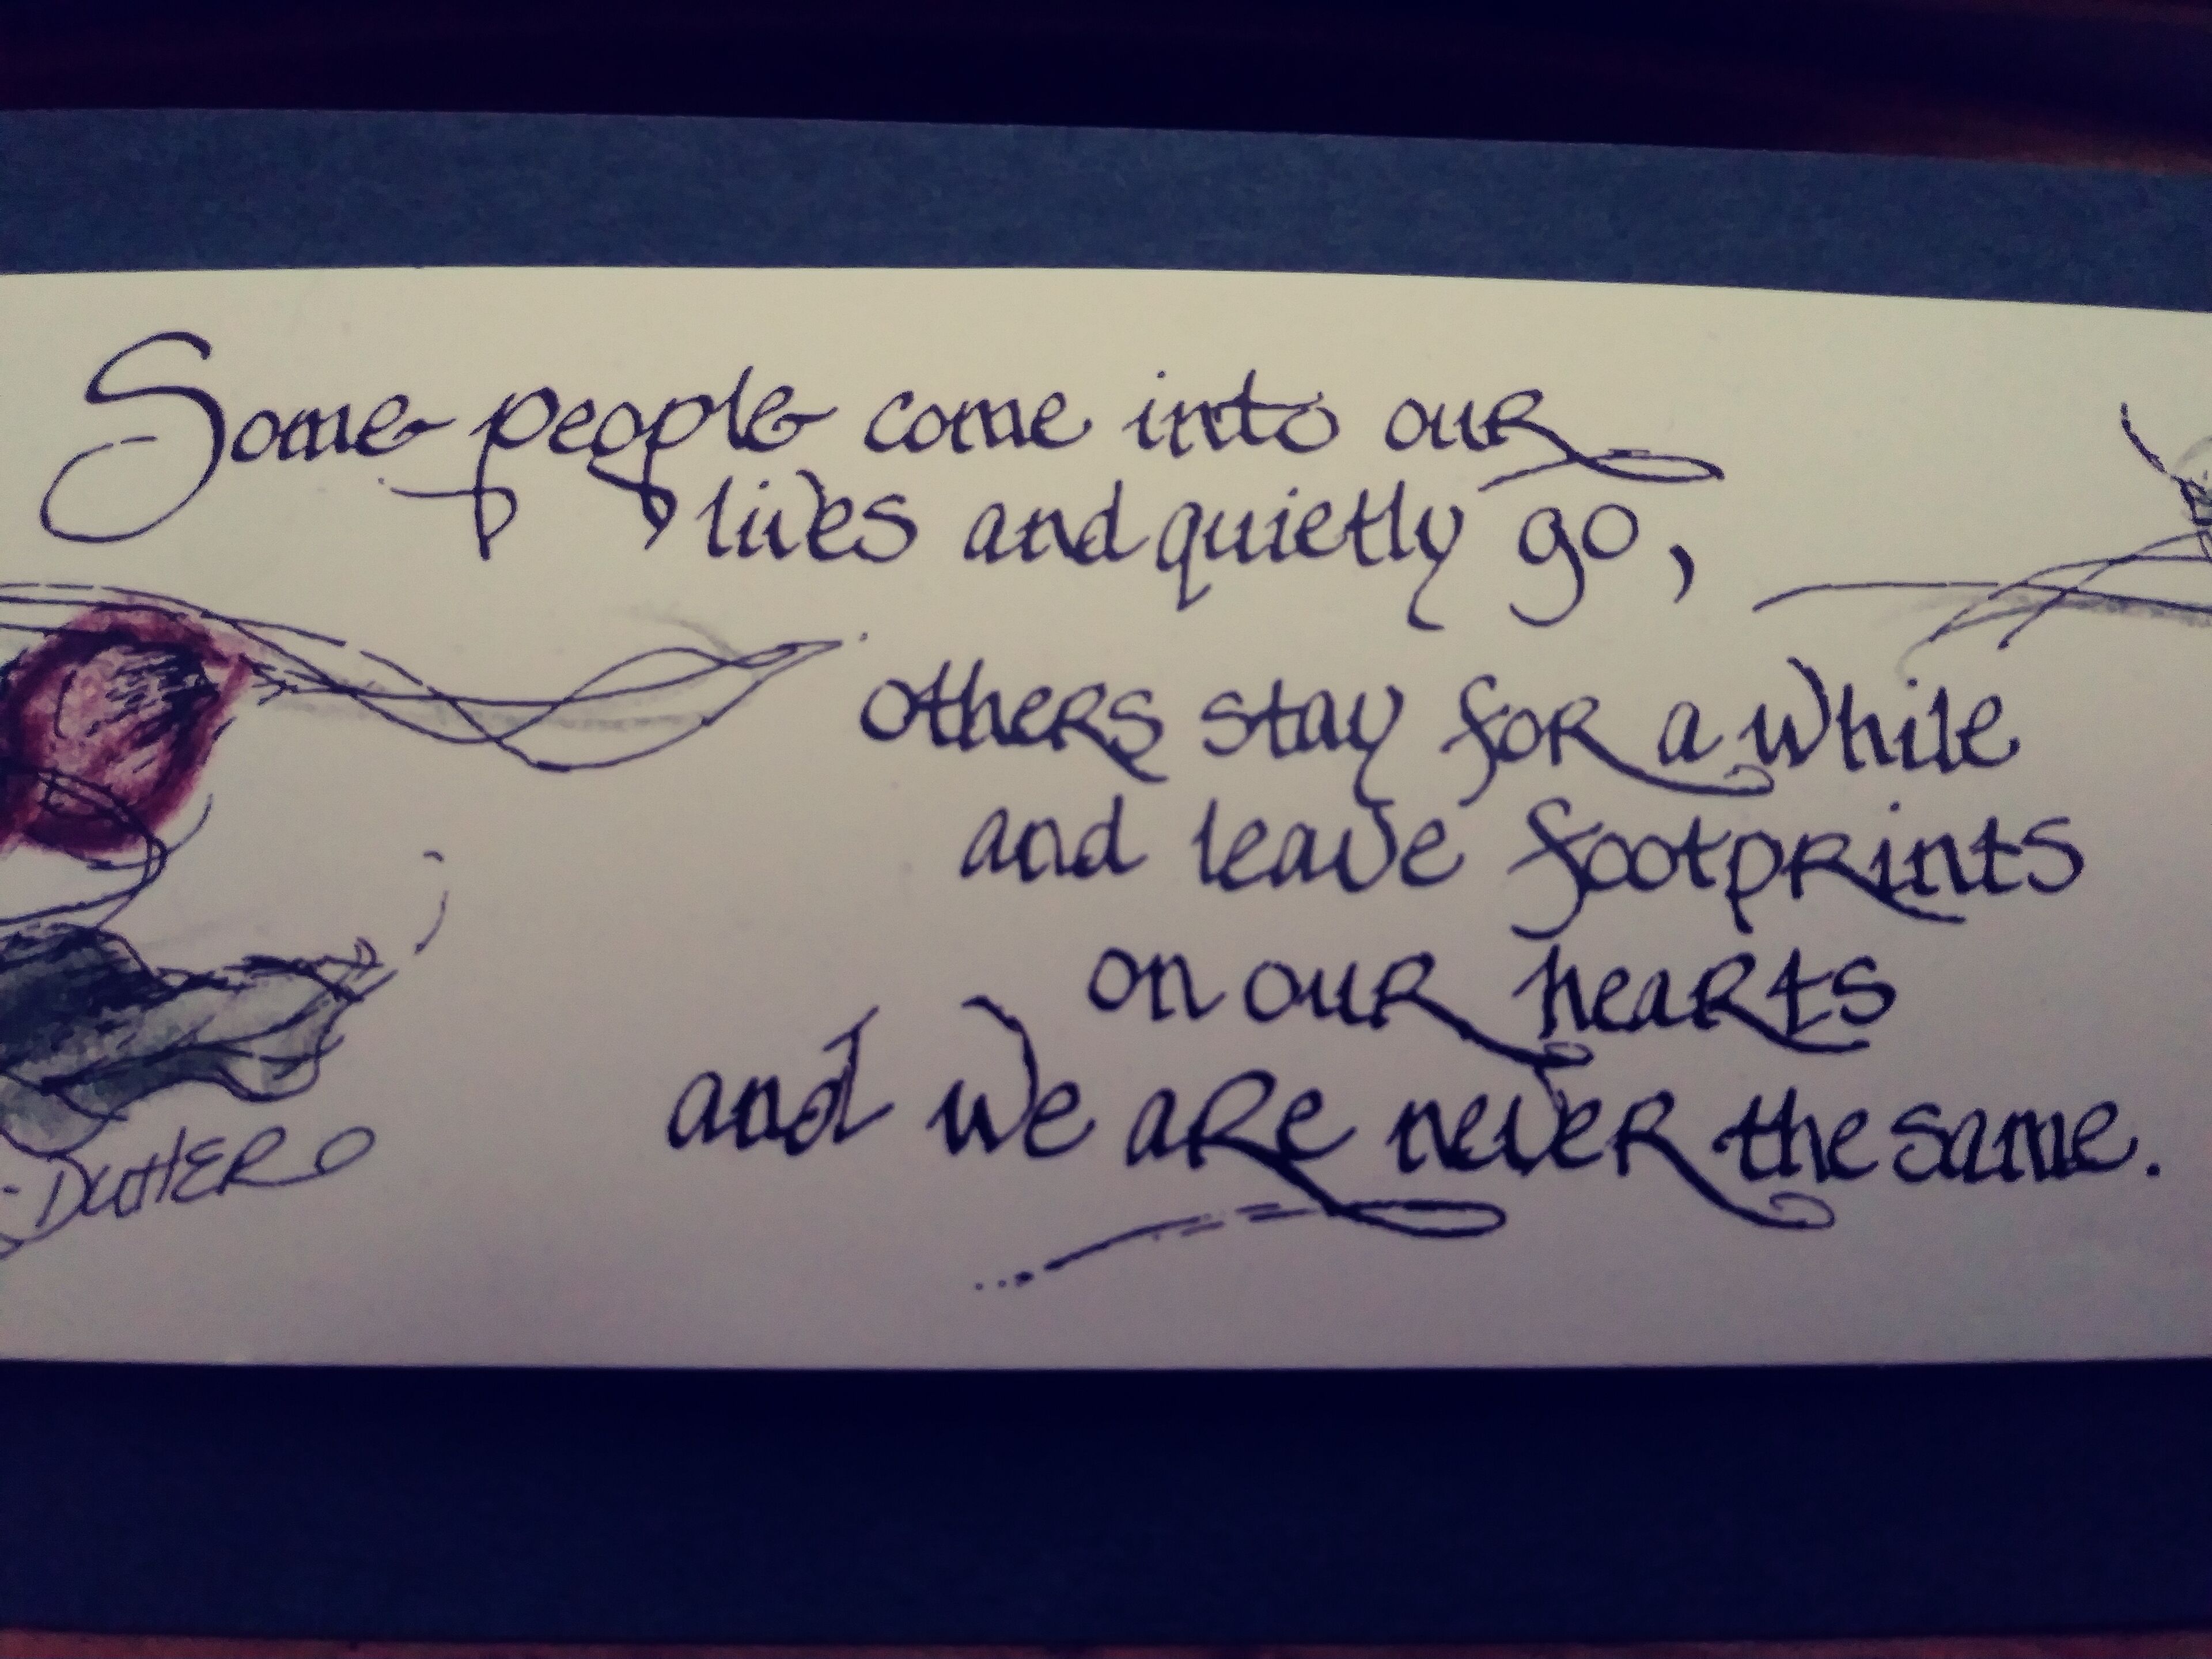 Some people come into our
lives and quietly go,
others stay for a while
and leave footprints
on our hearts
and we are never the same.